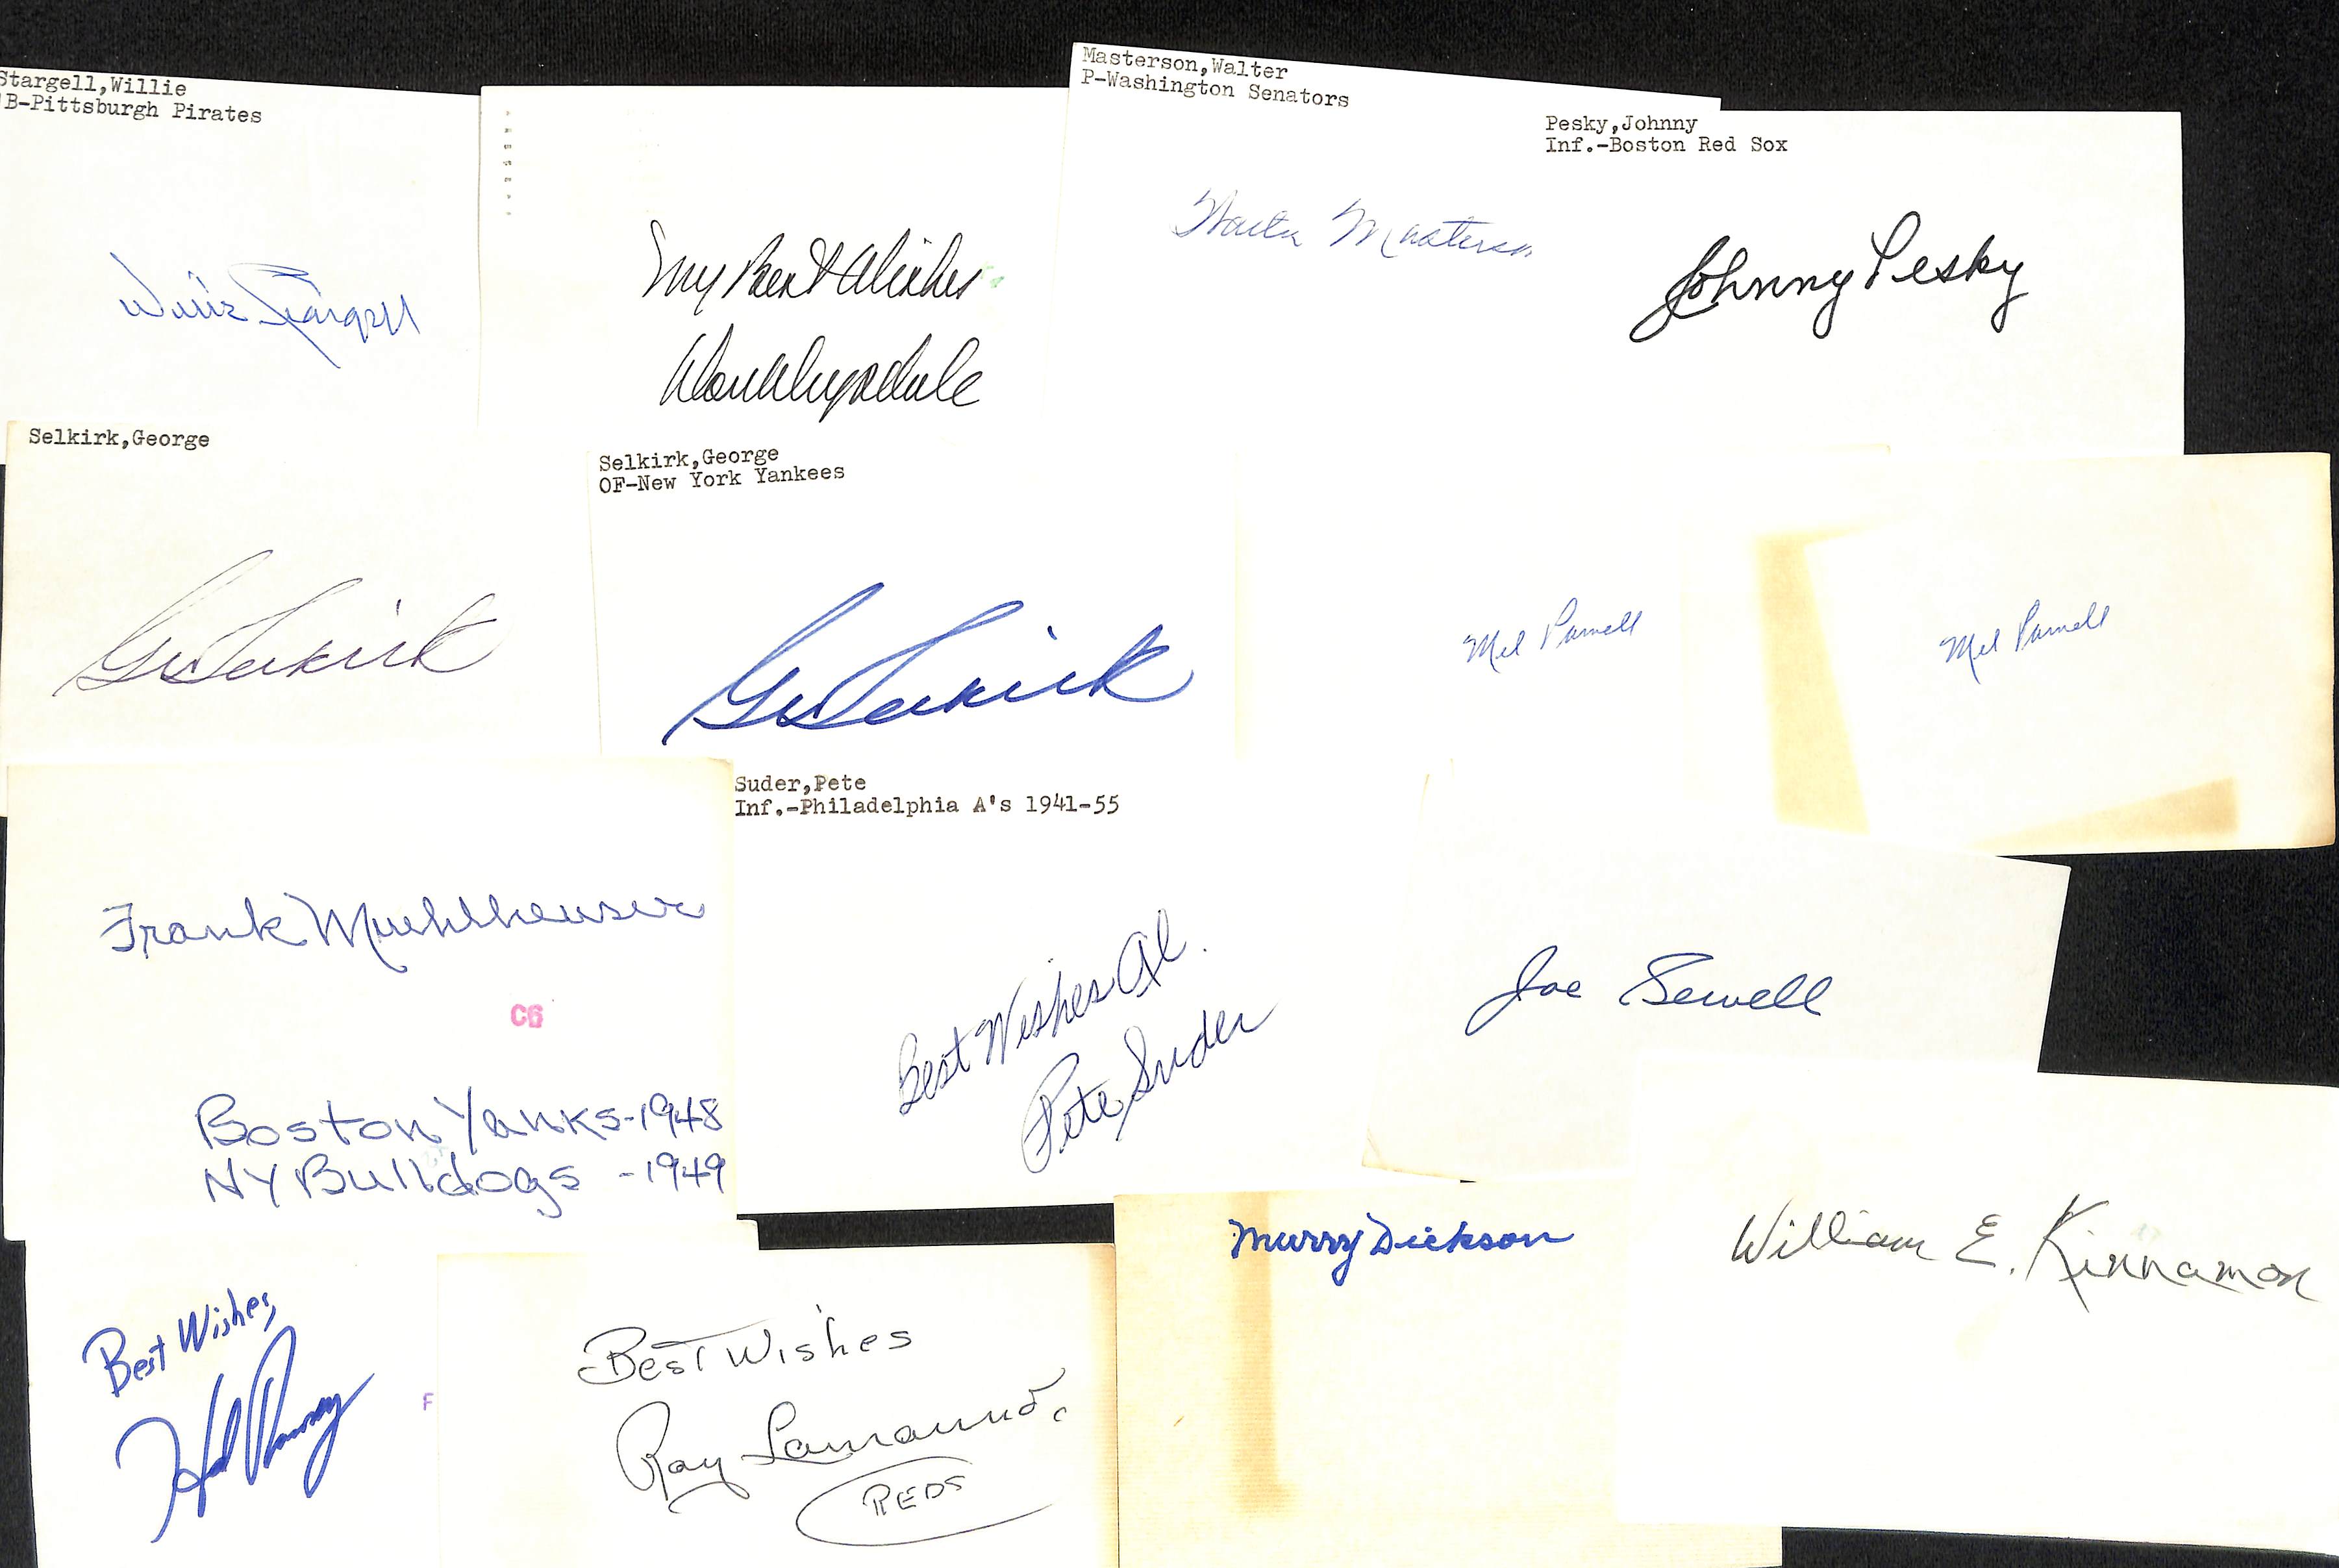 Stargell,Willie
B-Pittsburgh Pirates
Willie Stargell
My Best Wishes
Don Drysdale
Masterson,Walter
P-Washington Senators
Walter Masterson
Pesky,Johnny
Inf.-Boston Red Sox
Johnny Pesky
Selkirk,George
G Selkirk
Selkirk,George
OF-New York Yankees
G Selkirk
Mel Parnell
Mel Parnell
Frank Muehlheuser
C6
Boston Yanks-1948
NY Bulldogs -1949
Suder,Pete
Inf.-Philadelphia A's 1941-55
Best Wishes Al.
Pete Suder
Joe Sewell
Best Wishes,
F
Best Wishes
Ray Lamanno
REDS
Murry Dickson
William E. Kinnamon